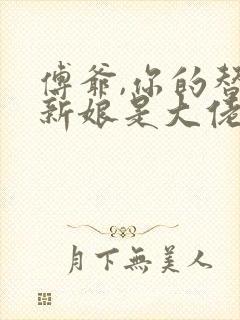 傅爷,你的替
新娘是大佬
月下無美人